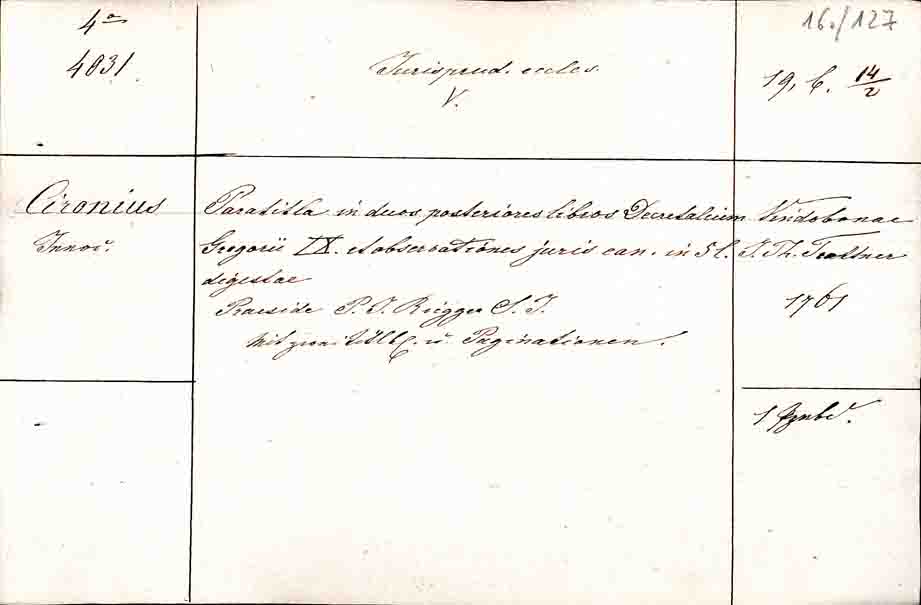 4º
4031
Jurisprud. eccles.
V.
16./127
19. b. 14/2
Cironius
Innoc.
Paratitla in duos posteriores libros Decretalium
Gregorii IX. et observationes juris can. in 5 l.
digestae
Praeside P. J. Riegger S. J.
Mit zwei u. Paginationen.
Vindobonae
J. Th. Trattner
1761
1